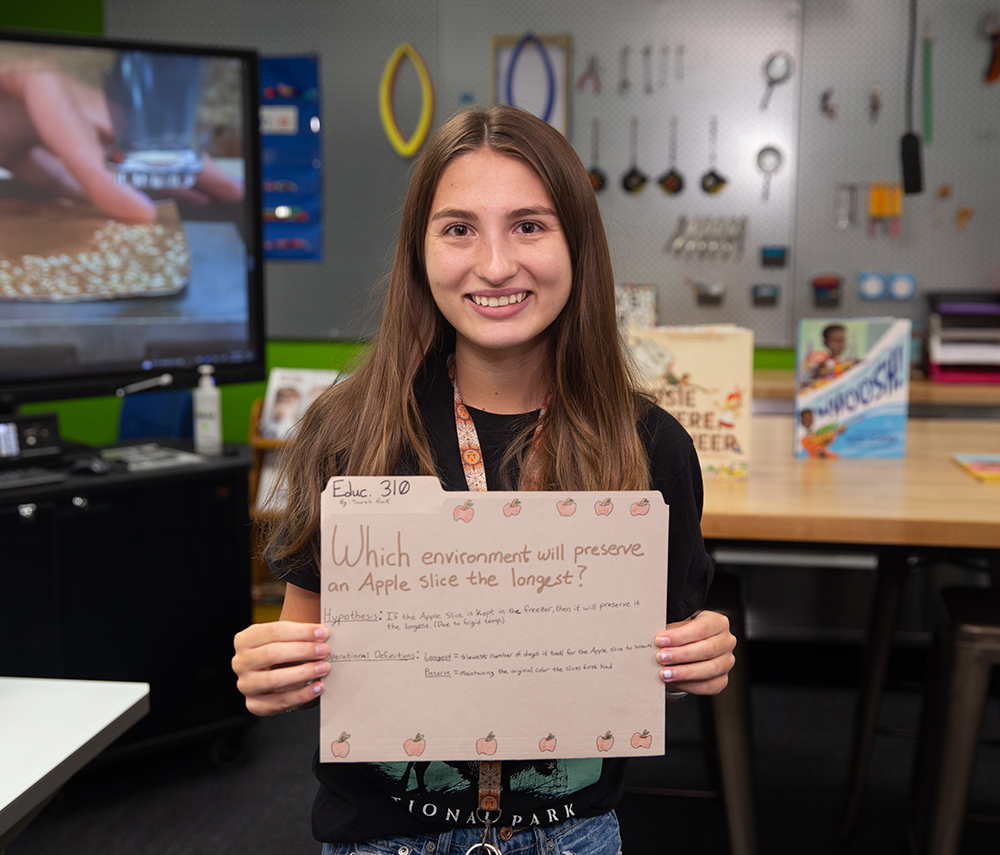 Educ. 310
By: Sarah
Which environment will preserve
an Apple slice the longest?
Hypothesis: If the Apple slice is kept in the freezer, then it will preserve it
the longest. (Due to frigid temp)
Operational Definitions: Longest = slowest number of days it took for the Apple slice to brown
Preserve = maintaining the original color the slices first had
TIONAL PARK
WHOOSH!